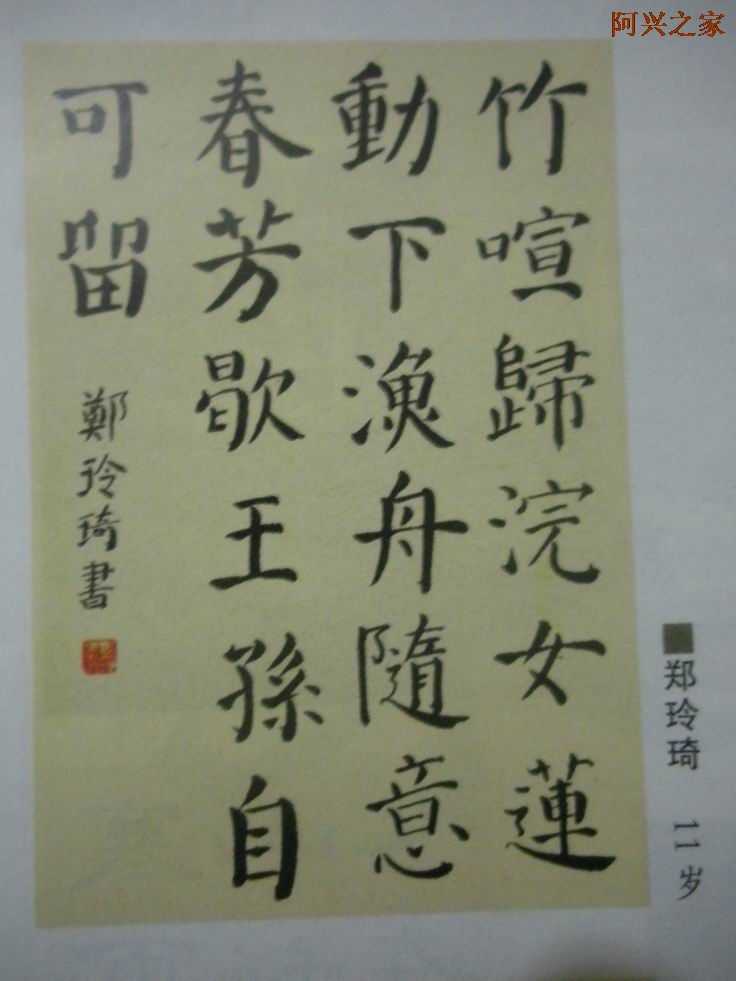 阿兴之家
竹喧歸浣女蓮
動下漁舟隨意
春芳歇王孫自
可留
鄭玲琦書
郑玲琦 11岁